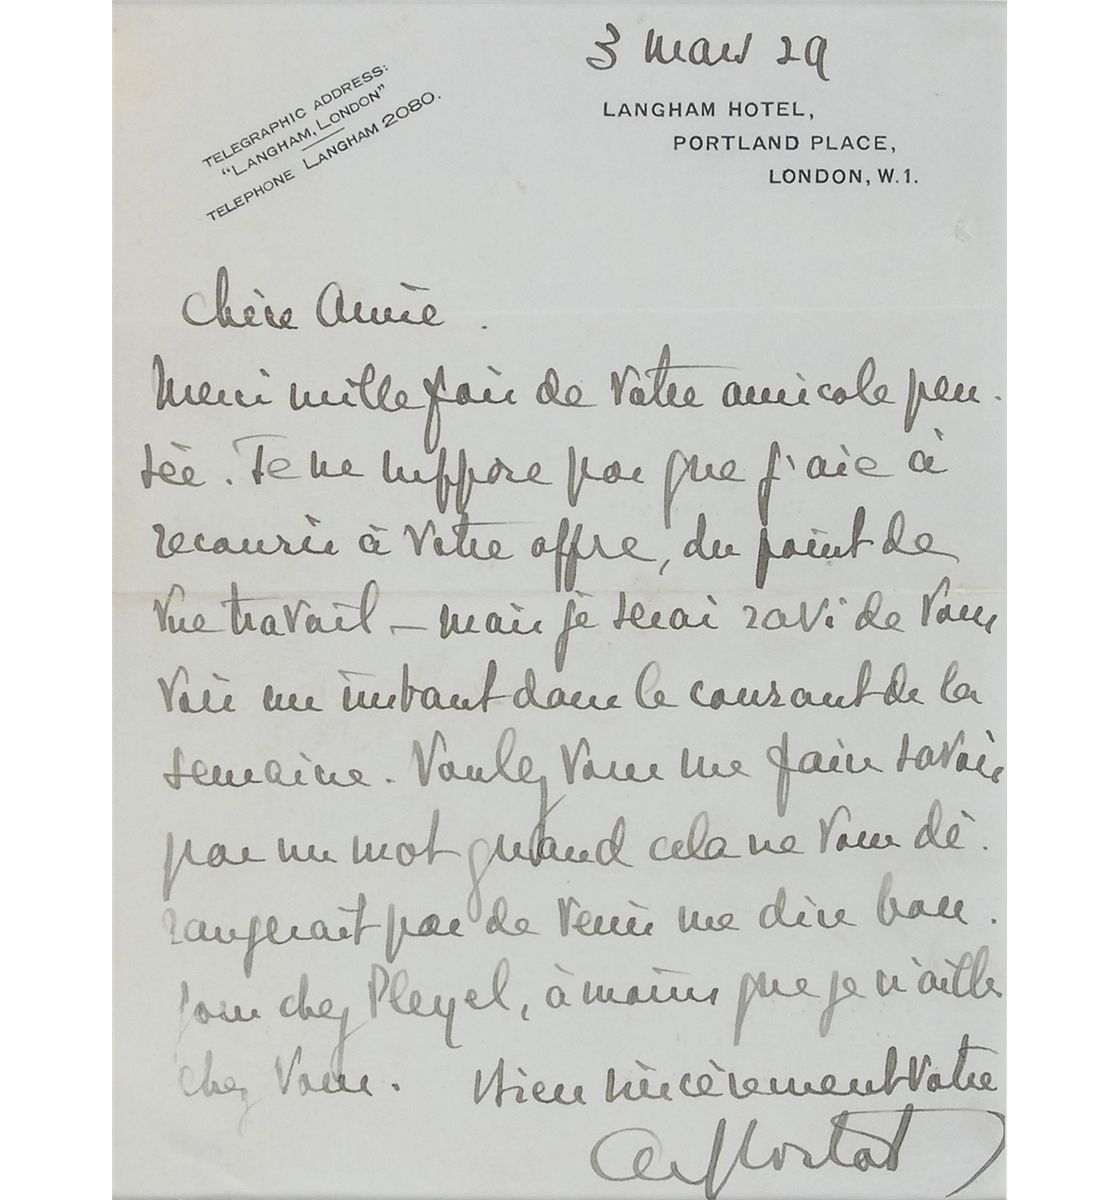 3 mars 29
TELEGRAPHIC ADDRESS:
"LANGHAM, LONDON"
TELEPHONE LANGHAM 2080.
LANGHAM HOTEL,
PORTLAND PLACE,
LONDON, W.1.
Chère Amie.
Merci mille fois de votre amicale pen-
sée. Je ne suppose pas que j'aie à
recourir à votre offre, du point de
vue travail – mais je serai ravi de vous
voir un instant dans le courant de la
semaine. Voulez vous me faire savoir
par un mot quand cela ne vous dé-
rangerait pas de venir me dire bon-
jour chez Pleyel, à moins que je n'aille
chez vous. Bien sincèrement votre
Alf Cortot